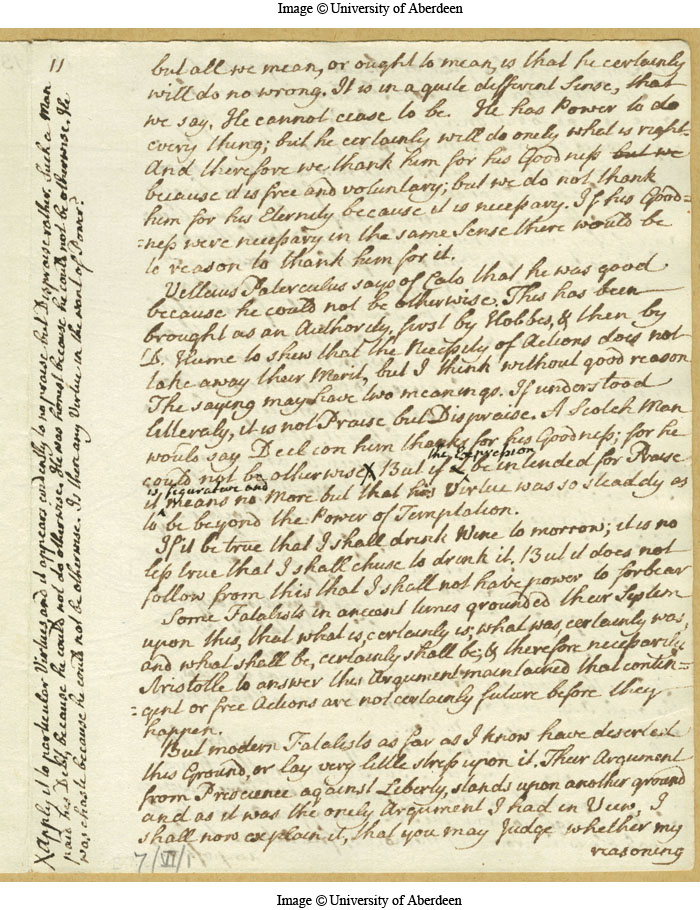 Image © University of Aberdeen
11
but all we mean, or ought to mean, is that he certainly
will do no wrong. It is in a quite different Sense, that
we say, He cannot cease to be. He has Power to do
every thing; but he certainly will do onely what is right.
And therefore we thank him for his Goodness but we
because it is free and voluntary; but we do not thank
him for his Eternity because it is necessary. If his Good=
=ness were necessary in the same Sense there would be
le reason to thank him for it.
Velleius Paterculus says of Cato that he was good
because he could not be otherwise. This has been
brought as an Authority, first by Hobbes, & then by
D. Hume to shew that the Necessity of Actions does not
take away their Merit, but I think without good reason
The saying may have two meanings. If understood
litteraly, it is not Praise but Dispraise. A Scotch Man
would say Deel con him thanks for his Goodness; for he
the Expression
could not be otherwise X But if be intended for Praise
is figurative and
it means no More but that his Virtue was so steddy as
to be beyond the Power of Temptation.
If it be true that I shall drink Wine to morrow; it is no
less true that I shall chuse to drink it. But it does not
follow from this that I shall not have power to forbear
Some Fatalists in ancient times grounded their System
upon this, that what is, certainly is; what was, certainly was,
and what shall be, certainly shall be, & therefore necessarily
Aristotle to answer this Argument maintained that contin=
=gent or free Actions are not certainly future before they
happen.
But modern Fatalists as far as I know have deserted
this Ground, or lay very little stress upon it. Their Argument
from Prescience against Liberty, stands upon another ground
and as it was the onely Argument I had in View, I
shall now explain it, that you may Judge whether my
reasoning
X Apply it to particular Virtues and it appears evidently to be no praise but Dispraise rather. Such a Man
paid his Debt, because he could not do otherwise. He was honest because he could not be otherwise. He
was chaste because he could not be otherwise. Is there any Virtue in the want of Power?
7/VI/1
Image © University of Aberdeen